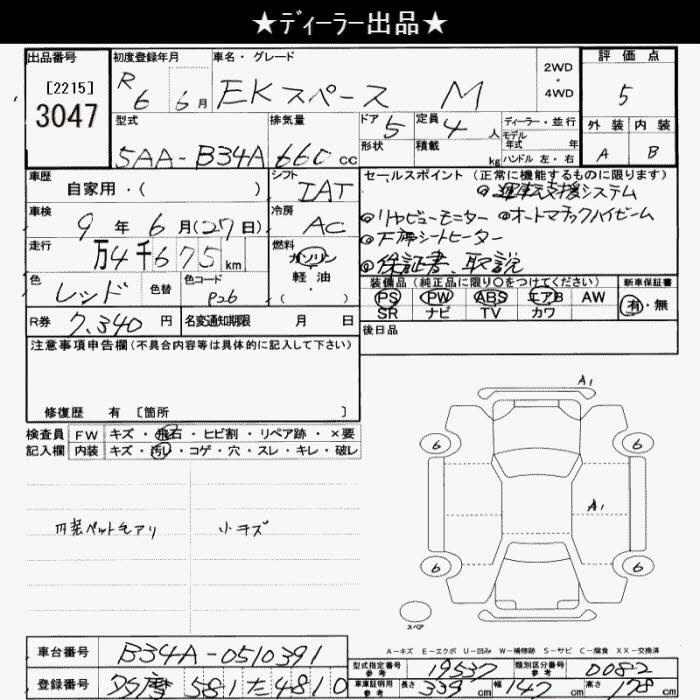 ★ディーラー出品★
出品番号 初度登録年月 車名・グレード 評価点
[2215] R 2WD
3047 6 6月 EKスペース M ・ 5
4WD
型式 排気量 ドア 5 定員 4人 ディーラー・並行 外装 内装
モデル年式 年
5AA-B34A 660cc 形状 積載 kg ハンドル 左・右 A B
車歴 シフト セールスポイント(正常に機能するものに限ります)
自家用・( ) IAT ◎運転支援システム
車検 冷房 ◎リヤビューモニター ◎オートマチックハイビーム
9年6月(27日) AC
走行 燃料 ◎下席シートヒーター
万4千675km ガソリン ◎保証書、取説
色 色替 色コード ・ 装備品(純正品に限り○をつけてください) 新車保証書
レッド P26 軽油 PS PW ABS エアB AW 有・無
( ) SR ナビ TV カワ
R券 7,340円 名変通知期限 月 日 後日品
注意事項申告欄(不具合内容等は具体的に記入して下さい)
修復歴 有 [箇所 ]
A1
検査員 FW キズ・飛石・ヒビ割・リペア跡・×要
記入欄 内装 キズ・汚レ・コゲ・穴・スレ・キレ・破レ
6 6
A1
内装ペット毛アリ 小キズ
6 6
スペア
A-キズ E-エクボ U-凹み W-補修跡 S-サビ C-腐食 XX-交換済
車台番号 B34A-0510391
型式指定番号 参考 19537 類別区分番号 参考 0082
登録番号 581 た4810
車庫証明用 参考 長さ 339cm 幅 147cm 高さ 178cm